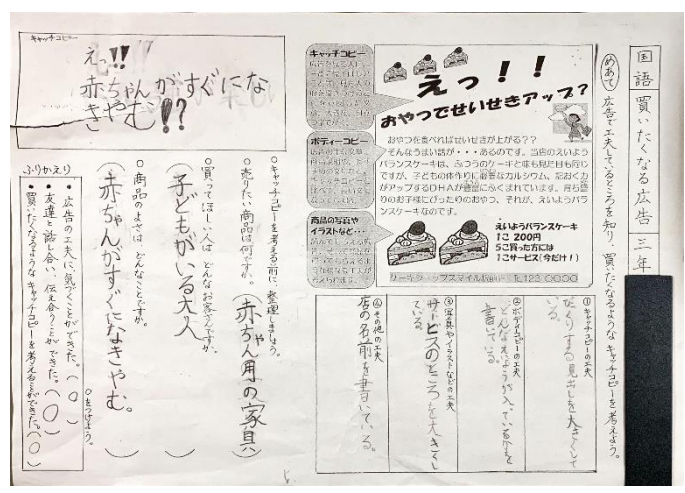 国語 買いたくなる広告 三年
めあて 広告で工夫しているところを知り、買いたくなるようなキャッチコピーを考えよう。
えっ!!
おやつでせいせきアップ?
おやつを食べればせいせきが上がる??
そんなうまい話が・・・あるのです。当店のえいよう
バランスケーキは、ふつうのケーキと味も見た目も同じ
ですが、子どもの体作りに必要なカルシウム、記おく力
がアップするDHAが豊富にふくまれています。育ち盛り
のお子様にぴったりのおやつ、それが、えいようバラ
ンスケーキなのです。
えいようバランスケーキ
1こ 200円
5こ買った方には
1こサービス(今だけ!)
キャッチコピー
ボディーコピー
商品の写真や
イラストなど・・・
①キャッチコピーの工夫
びっくりする見出しを大きくして
いる。
②ボディコピーの工夫
どんなえいようが入っているかを
書いている。
③写真やイラストなどの工夫
サービスのところを大きくし
ている。
④その他の工夫
店の名前を書いている。
○キャッチコピーを考える前に、整理しましょう。
○売りたい商品は何ですか。
(赤ちゃん用の家具)
○買ってほしい人は どんなお客さんですか。
子どもがいる大人
○商品のよさは どんなことですか。
(赤ちゃんがすぐになきやむ。)
キャッチコピー
えっ!!
赤ちゃんがすぐにな
きやむ!?
ふりかえり
○をつけよう。
・広告の工夫に、気づくことができた。(○)
・友達と話し合い、伝え合うことができた。(○)
・買いたくなるようなキャッチコピーを考えることができた。(○)